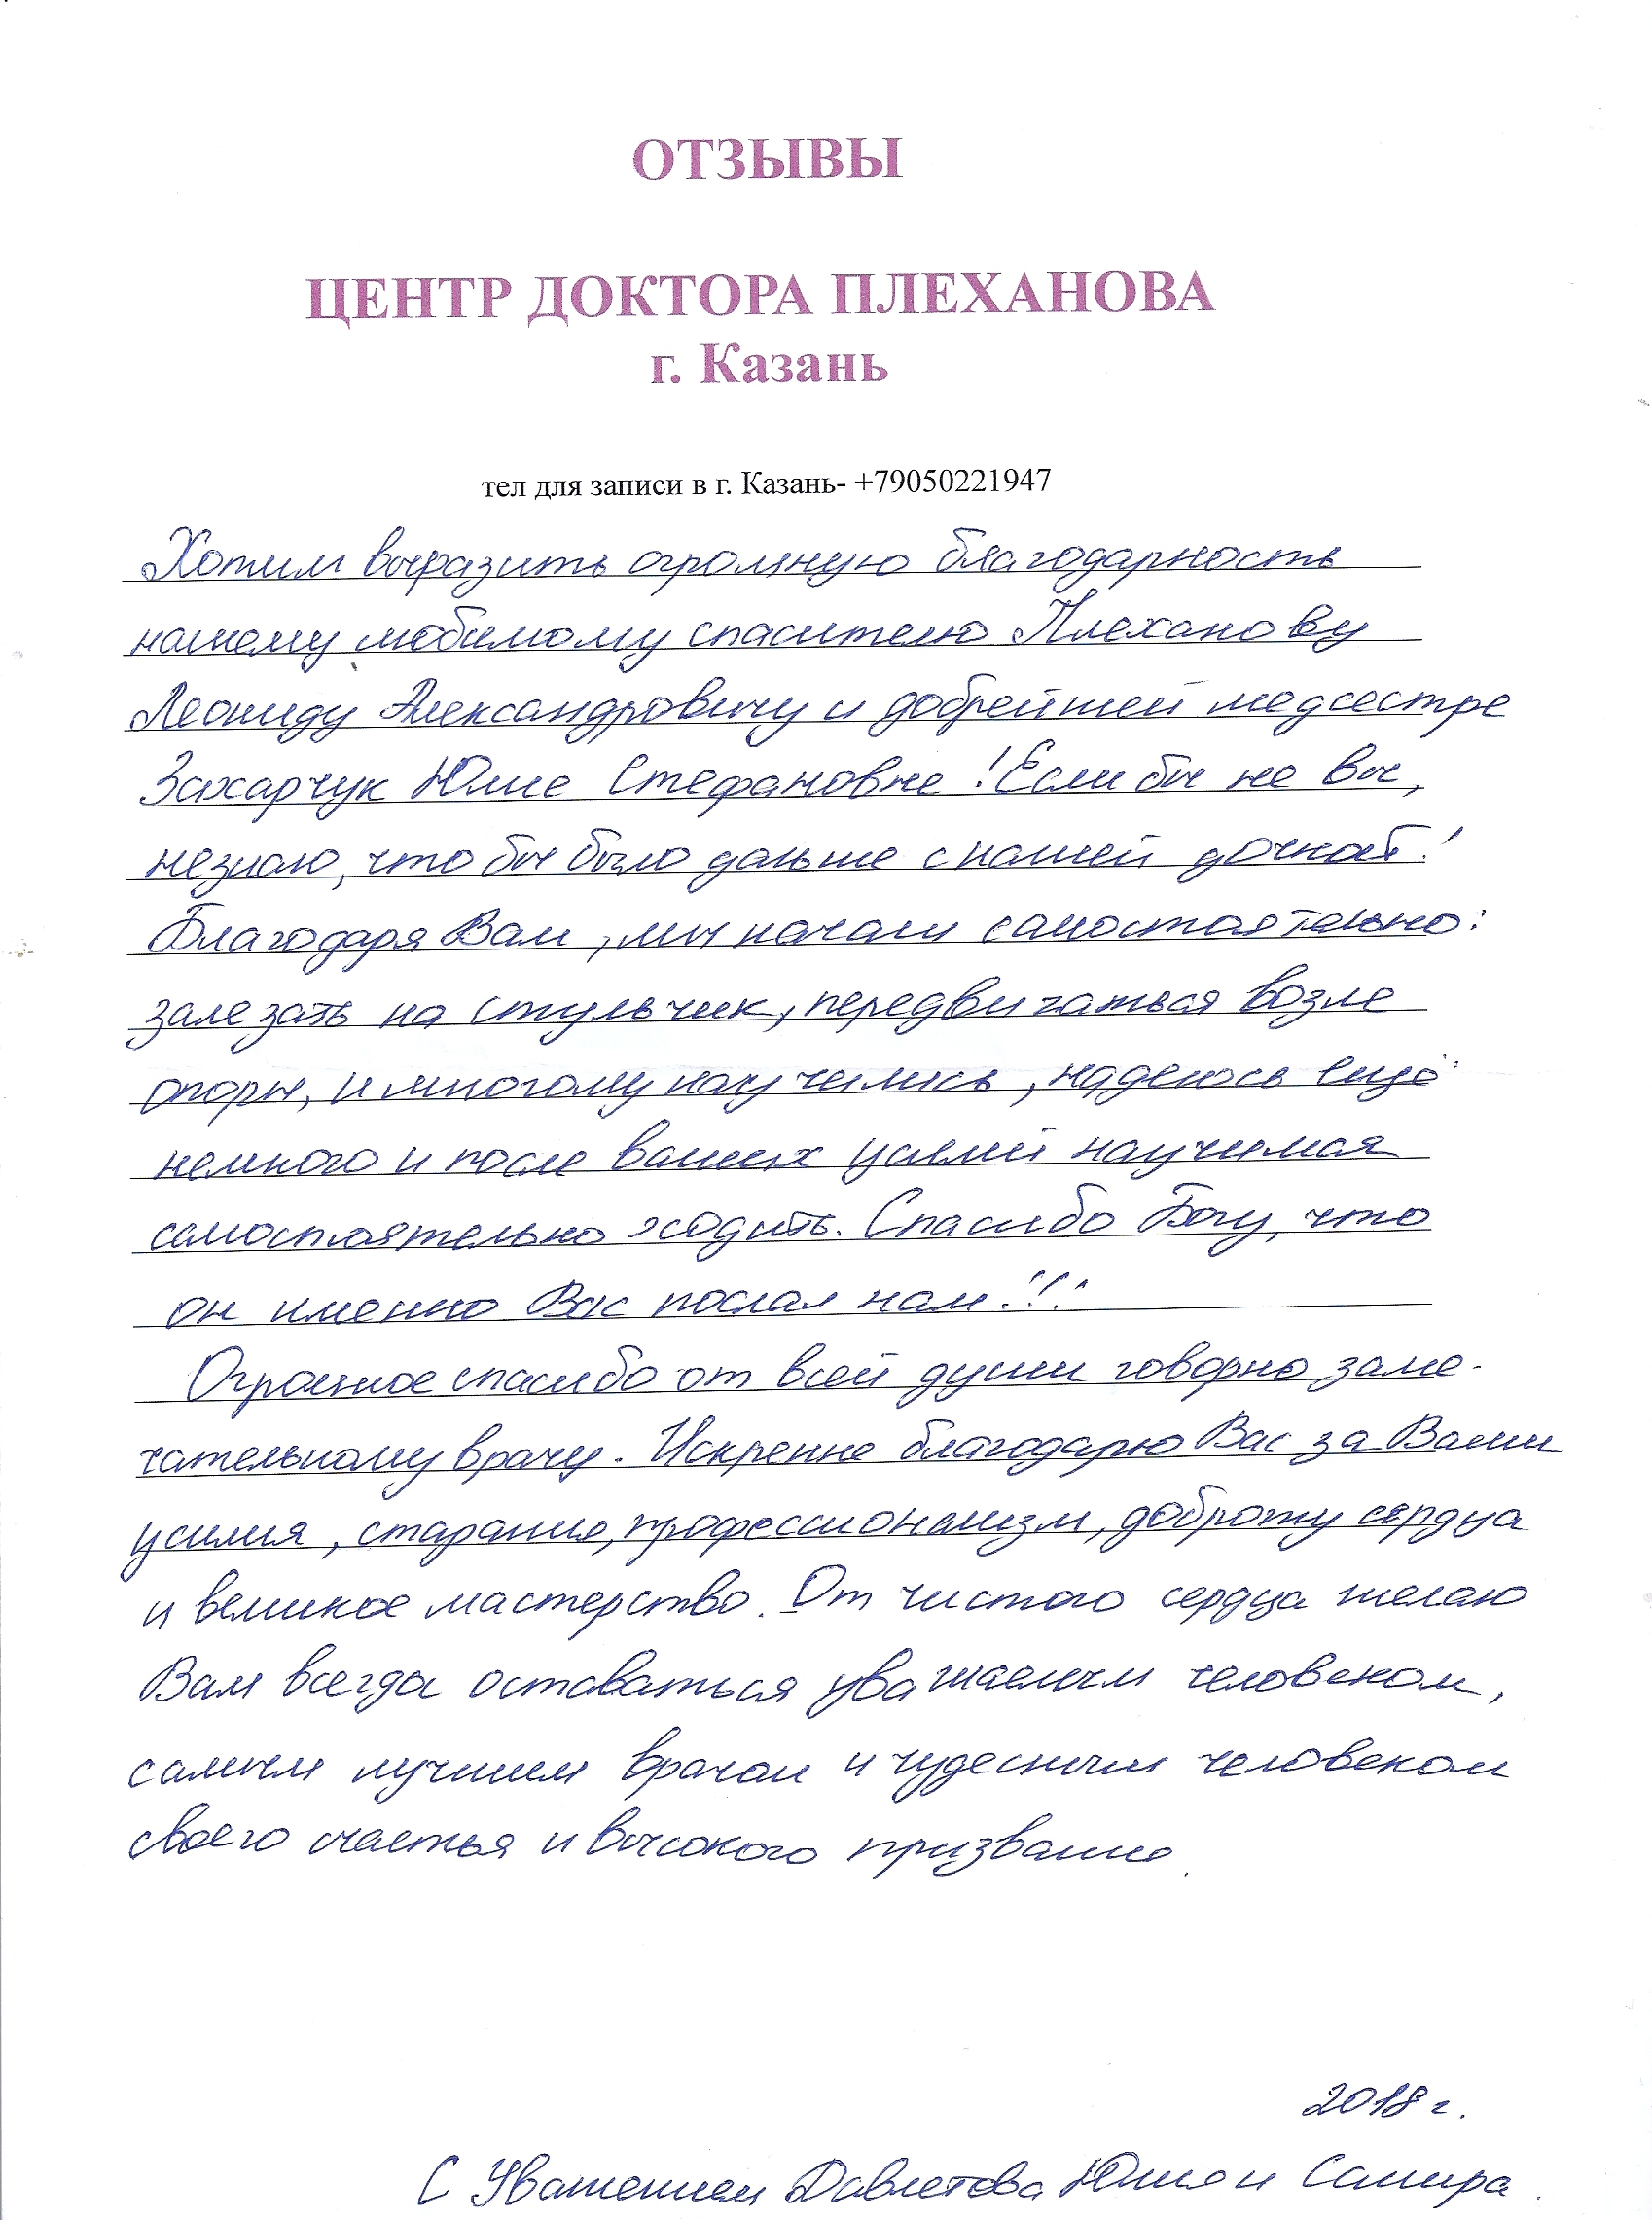 ОТЗЫВЫ
ЦЕНТР ДОКТОРА ПЛЕХАНОВА
г. Казань
тел для записи в г. Казань- +79050221947
Хотим выразить огромную благодарность
нашему любимому спасителю Плеханову
Леониду Александровичу и добрейшей медсестре
Захарчук Юлие Стефановне! Если бы не вы,
не знаю, что бы было дальше с нашей дочкой!
Благодаря Вам, мы начали самостоятельно:
залезать на стульчик, передвигаться возле
опоры, и многому научились, надеюсь ещё
немного и после ваших усилий научимся
самостоятельно ходить. Спасибо Богу, что
он именно Вас послал нам!!!
Огромное спасибо от всей души говорю заме-
чательному врачу. Искренне благодарю Вас за Ваши
усилия, старание, профессионализм, доброту сердца
и великое мастерство. От чистого сердца желаю
Вам всегда оставаться уважаемым человеком,
самым лучшим врачом и чудесным человеком
своего счастья и высокого призвание.
2018 г.
С Уважением Давлетова Юлия и Самира.